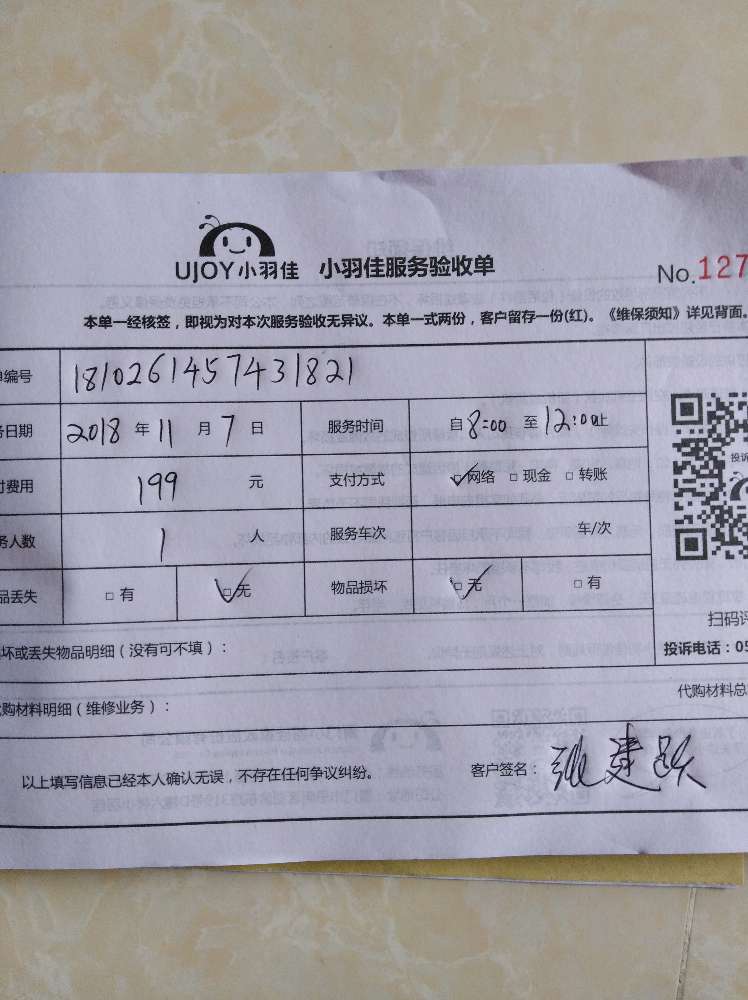 UJOY小羽佳 小羽佳服务验收单
No.127
本单一经核签，即视为对本次服务验收无异议。本单一式两份，客户留存一份(红)。《维保须知》详见背面。
单编号 1810261457431821
务日期 2018 年 11 月 7 日 服务时间 自 8:00 至 12:00止
付费用 199 元 支付方式 ☑网络 □现金 □转账
务人数 1 人 服务车次 车/次
品丢失 □有 ☑无 物品损坏 ☑无 □有
投诉
扫码评
投诉电话：05
坏或丢失物品明细（没有可不填）：
购材料明细（维修业务）： 代购材料总
以上填写信息已经本人确认无误，不存在任何争议纠纷。 客户签名：张建跃